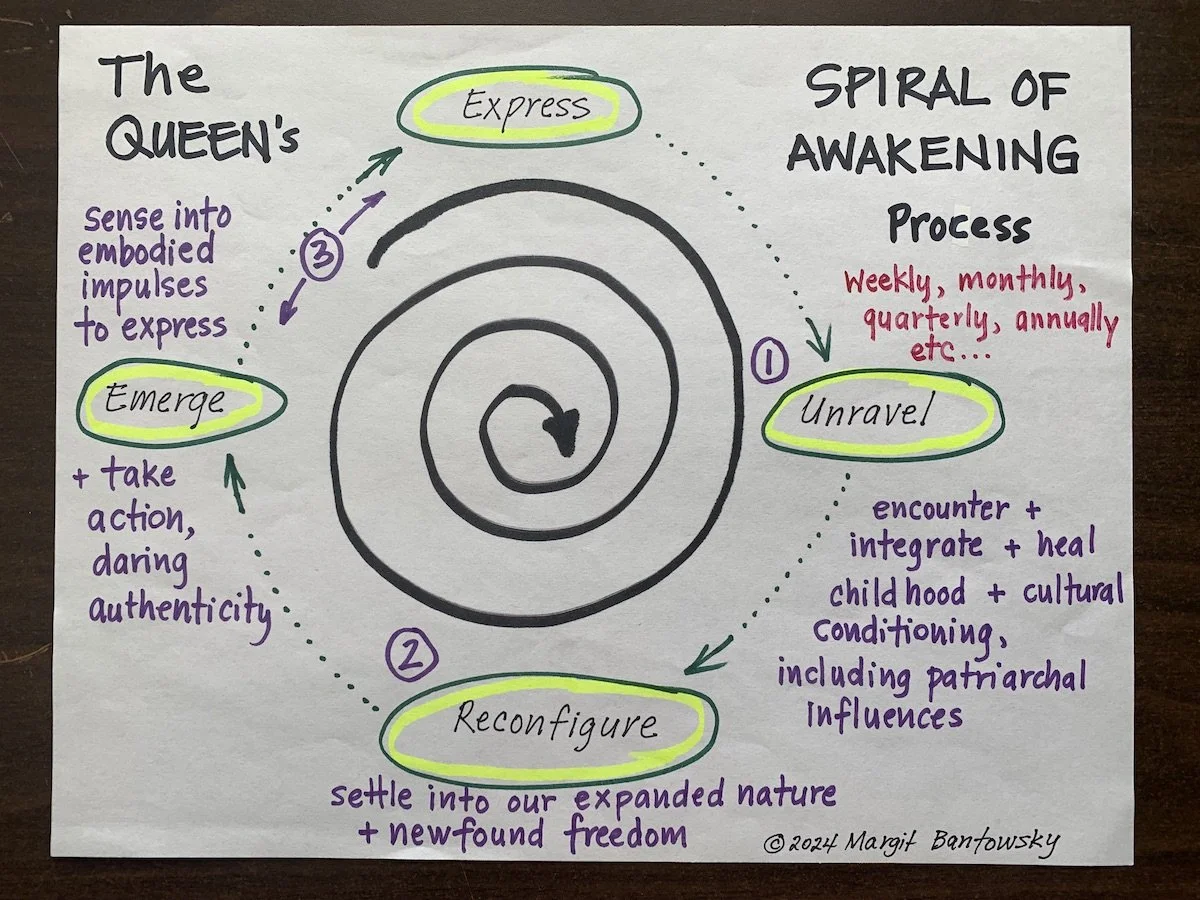 The
QUEEN's
SPIRAL OF
AWAKENING
Process
weekly, monthly,
quarterly, annually
etc...
Express
1
Unravel
encounter +
integrate + heal
childhood + cultural
conditioning,
including patriarchal
influences
2
Reconfigure
settle into our expanded nature
+ newfound freedom
3
sense into
embodied
impulses
to express
Emerge
+ take
action,
daring
authenticity
©2024 Margit Bantowsky